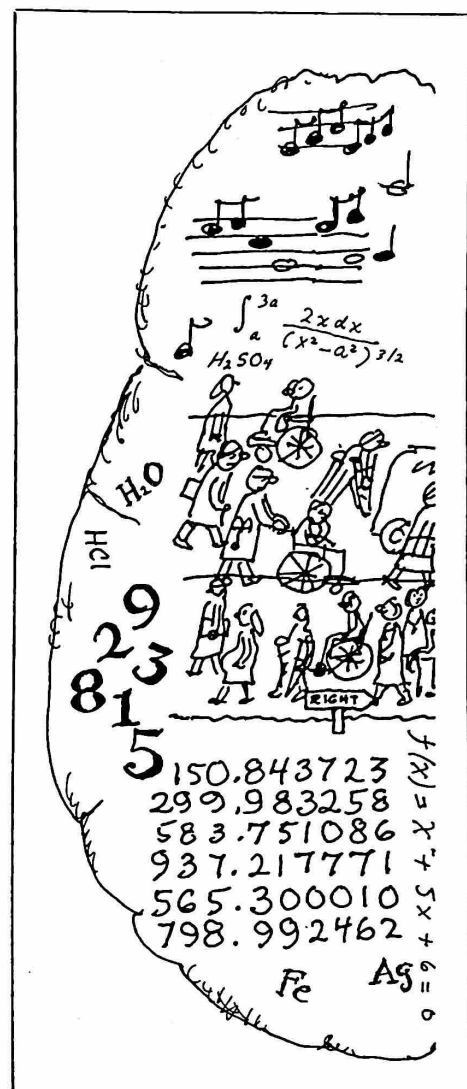 ∫ₐ³ᵃ 2xdx / (x²-a²)³/²
H₂SO₄
H₂O
HCl
9
2
3
8
1
5
RIGHT
150.843723
299.983258
583.751086
937.217771
565.300010
798.992462
f(x) = x² + 5x + 6 = 0
Fe
Ag